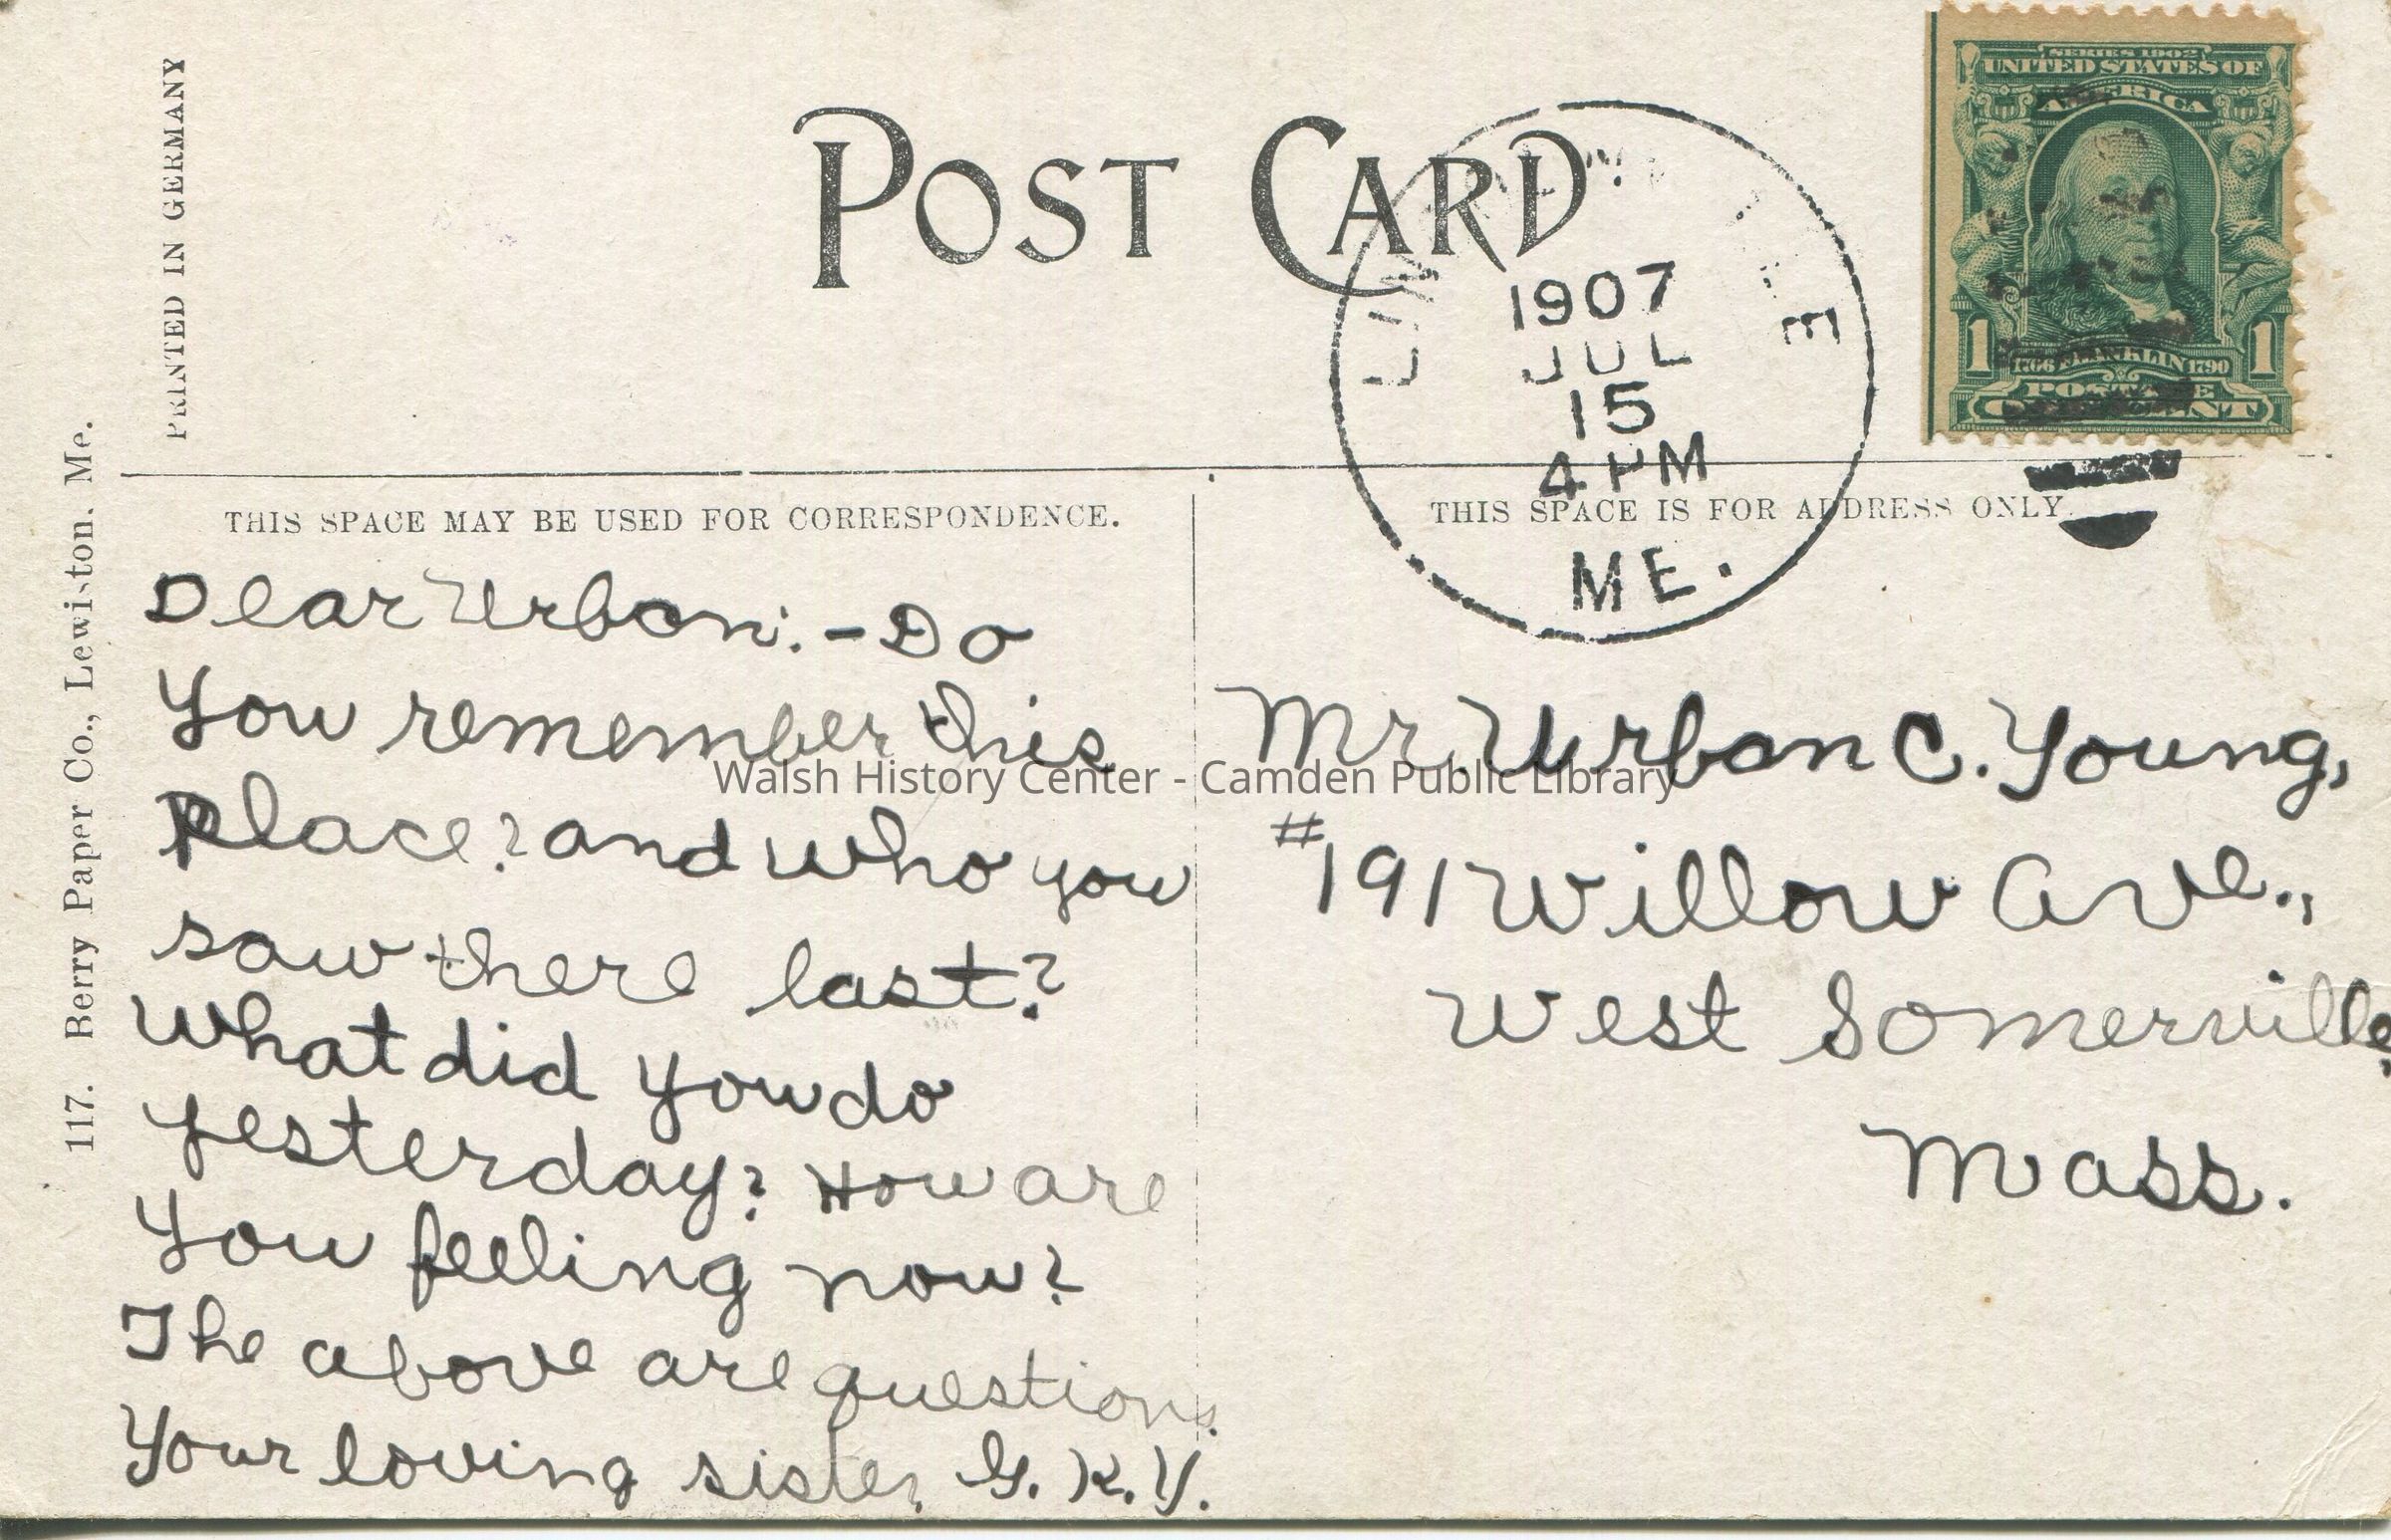 PRINTED IN GERMANY
117. Berry Paper Co., Lewiston. Me.
POST CARD
1907
JUL
15
4 PM
ME.
SERIES 1902
UNITED STATES OF
AMERICA
1 1766 FRANKLIN 1790 1
POSTAGE
ONE CENT
THIS SPACE MAY BE USED FOR CORRESPONDENCE.
THIS SPACE IS FOR ADDRESS ONLY.
Dear Urban:- Do
You remember this
Place? and who you
saw there last?
What did You do
yesterday? How are
You feeling now?
The above are questions.
Your loving sister G. K. Y.
Mr. Urban C. Young,
#191 Willow Ave.,
West Somerville,
Mass.
Walsh History Center - Camden Public Library